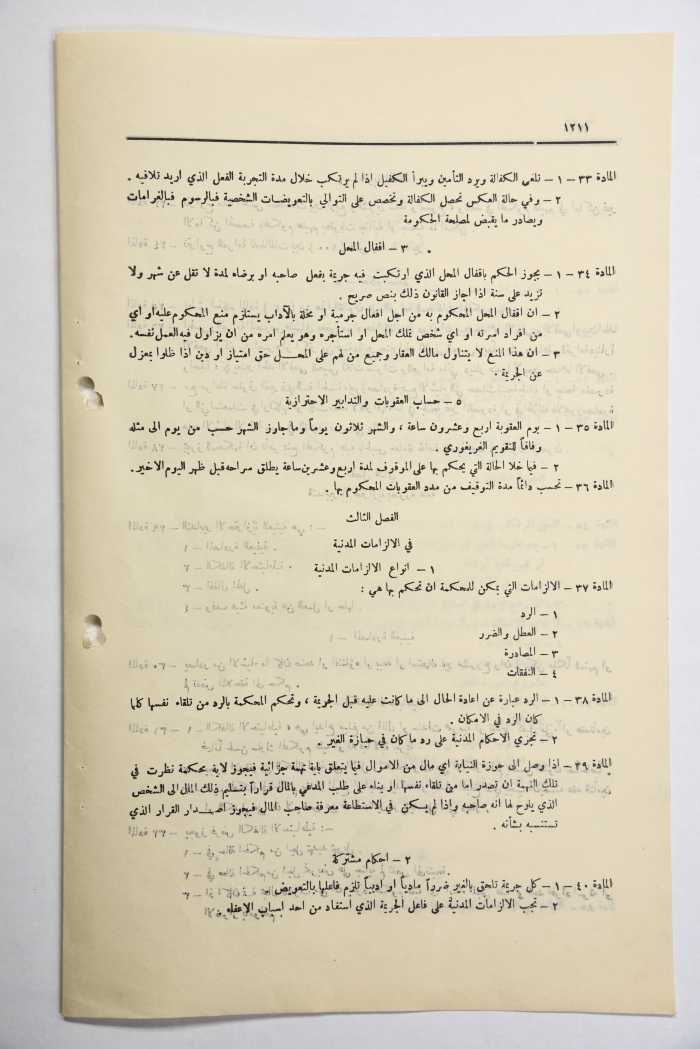 ١٢١١
المادة ٣٣ – ١ – تلغى الكفالة ويرد التأمين ويبرأ الكفيل اذا لم يرتكب خلال مدة التجربة الفعل الذي اريد تلافيه .
٢ – وفي حالة العكس تحصل الكفالة وتخصص على التوالي بالتعويضات الشخصية فبالرسوم فبالغرامات
ويصادر ما يقبض لمصلحة الحكومة
٣ – اقفال المحل .
المادة ٣٤ – ١ – يجوز الحكم باقفال المحل الذي ارتكبت فيه جريمة بفعل صاحبه او برضاه لمدة لا تقل عن شهر ولا
تزيد على سنة اذا اجاز القانون ذلك بنص صريح .
٢ – ان اقفال المحل المحكوم به من اجل افعال جرمية او مخلة بالآداب يستلزم منع المحكوم عليه او اي
من افراد اسرته او اي شخص تملك المحل او استأجره وهو يعلم امره من ان يزاول فيه العمل نفسه .
٣ – ان هذا المنع لا يتناول مالك العقار وجميع من لهم على المحل حق امتياز او دين اذا ظلوا بمعزل
عن الجريمة .
٥ – حساب العقوبات والتدابير الاحترازية
المادة ٣٥ – ١ – يوم العقوبة اربع وعشرون ساعة ، والشهر ثلاثون يوماً وما جاوز الشهر حسب من يوم الى مثله
وفاقاً للتقويم الغريغوري .
٢ – فيما خلا الحالة التي يحكم بها على الموقوف لمدة اربع وعشرين ساعة يطلق سراحه قبل ظهر اليوم الاخير .
المادة ٣٦ – تحسب دائماً مدة التوقيف من مدد العقوبات المحكوم بها .
الفصل الثالث
في الالزامات المدنية
١ – انواع الالزامات المدنية
المادة ٣٧ – الالزامات التي يمكن للمحكمة ان تحكم بها هي :
١ – الرد
٢ – العطل والضرر
٣ – المصادرة
٤ – النفقات
المادة ٣٨ – ١ – الرد عبارة عن اعادة الحال الى ما كانت عليه قبل الجريمة ، وتحكم المحكمة بالرد من تلقاء نفسها كلما
كان الرد في الامكان .
٢ – تجري الاحكام المدنية على رد ما كان في حيازة الغير .
المادة ٣٩ – اذا وصل الى حوزة النيابة اي مال من الاموال فيما يتعلق باية تهمة جزائية فيجوز لاية محكمة نظرت في
تلك التهمة ان تصدر اما من تلقاء نفسها او بناء على طلب المدعي بالمال قراراً بتسليم ذلك المال الى الشخص
الذي يلوح لها انه صاحبه واذا لم يكن في الاستطاعة معرفة صاحب المال فيجوز اصدار القرار الذي
تستنسبه بشأنه .
٢ – احكام مشتركة
المادة ٤٠ – ١ – كل جريمة تلحق بالغير ضرراً مادياً او ادبياً تلزم فاعلها بالتعويض .
٢ – تجب الالزامات المدنية على فاعل الجريمة الذي استفاد من احد اسباب الاعفاء .